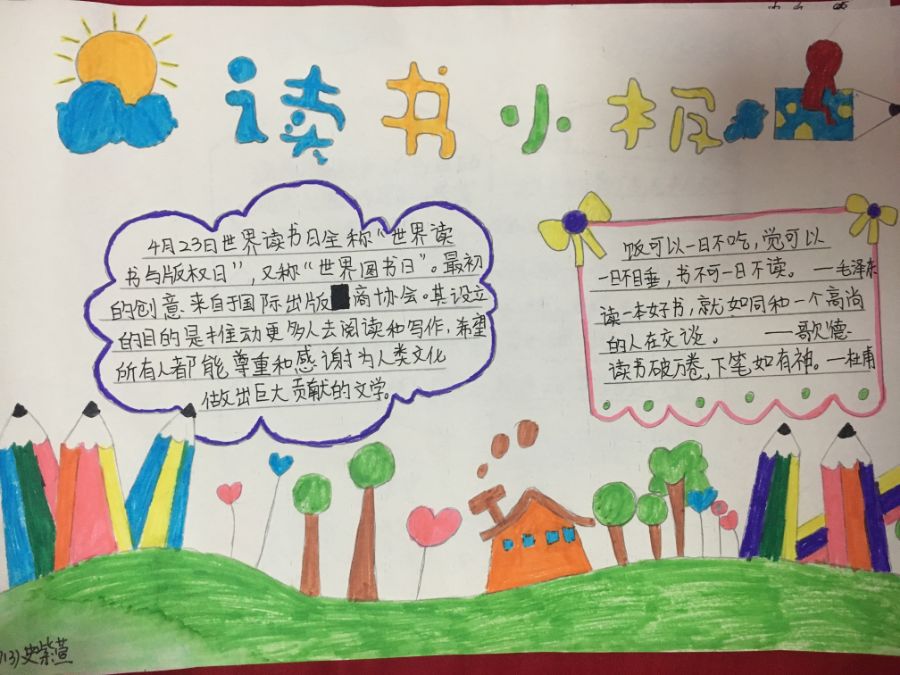 读书小报
4月23日世界读书日全称“世界读
书与版权日”，又称“世界图书日”。最初
的创意来自于国际出版商协会。其设立
的目的是推动更多人去阅读和写作，希望
所有人都能尊重和感谢为人类文化
做出巨大贡献的文学。
饭可以一日不吃，觉可以
一日不睡，书不可一日不读。—毛泽东
读一本好书，就如同和一个高尚
的人在交谈。——歌德
读书破万卷，下笔如有神。—杜甫
史紫萱